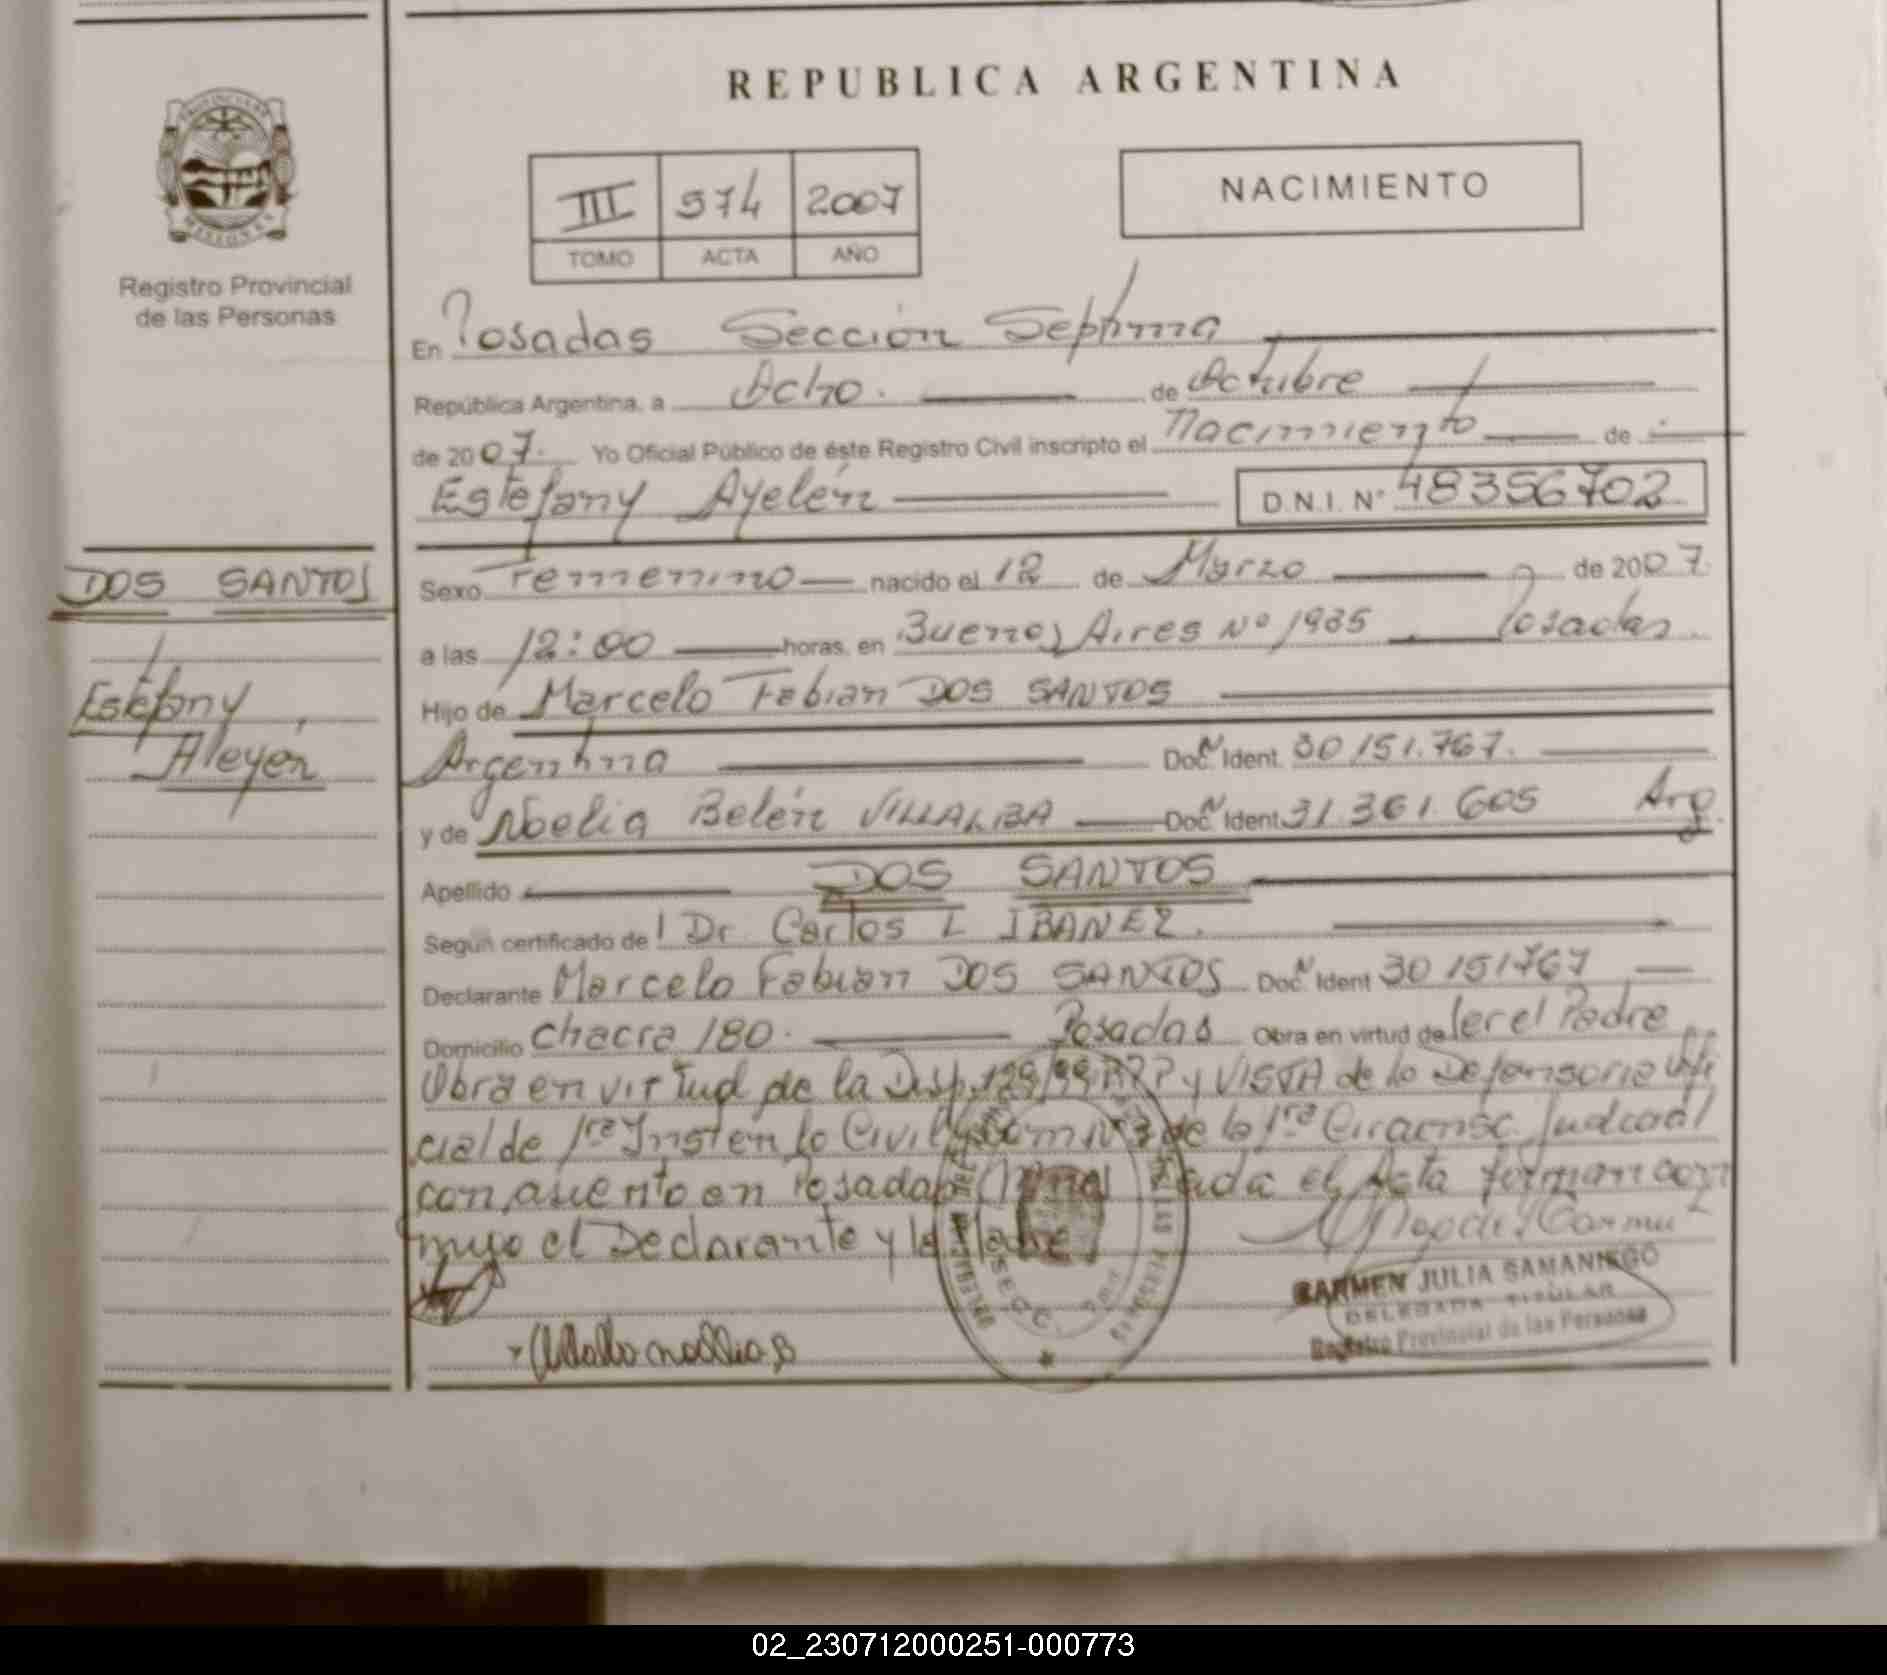 REPUBLICA ARGENTINA
PROVINCIA DE
MISIONES
Registro Provincial
de las Personas
III 574 2007
TOMO ACTA AÑO
NACIMIENTO
En Posadas Sección Septima
República Argentina, a Ocho. de Octubre
de 2007. Yo Oficial Público de éste Registro Civil inscripto el Nacimiento de
Estefany Ayelén D.N.I. N° 48356702
DOS SANTOS
Estefany
Aleyén
Sexo Femenino nacido el 12 de Marzo de 2007.
a las 12:00 horas. en Buenos Aires Nº 1935 Posadas.
Hijo de Marcelo Fabian DOS SANTOS
Argentina Doc. Ident. 30151.767.
y de Noelia Belén VILLALBA Doc. Ident 31.361.605 Arg.
Apellido DOS SANTOS
Según certificado de Dr. Carlos L IBAÑEZ.
Declarante Marcelo Fabian DOS SANTOS Doc. Ident 30151767
Domicilio Chacra 180. Posadas Obra en virtud de ser el Padre
Obra en virtud de la Disp. 129/99 RPP y VISTA de la Defensoria Ofi
cial de 1ra Inst en lo Civil y Com Nº3 de la 1ra Circunsc. Judicial
con asiento en Posadas el Acta forman con
migo el Declarante y la Madre
CARMEN JULIA SAMANIEGO
DELEGADA TITULAR
Registro Provincial de las Personas
02_230712000251-000773